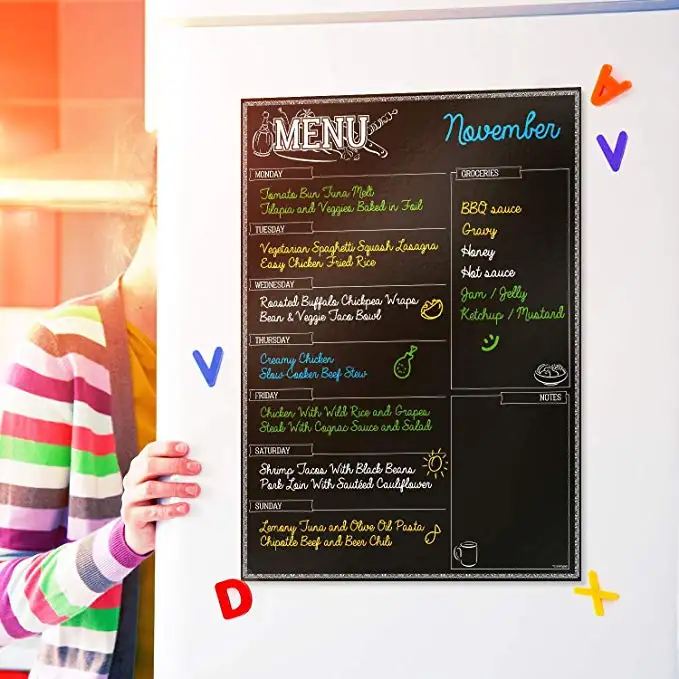 MENU
November
MONDAY
Tomato Bun Tuna Melt
Tilapia and Veggies Baked in Foil
TUESDAY
Vegetarian Spaghetti Squash Lasagna
Easy Chicken Fried Rice
WEDNESDAY
Roasted Buffalo Chickpea Wraps
Bean & Veggie Taco Bowl
THURSDAY
Creamy Chicken
Slow-Cooker Beef Stew
FRIDAY
Chicken With Wild Rice and Grapes
Steak With Cognac Sauce and Salad
SATURDAY
Shrimp Tacos With Black Beans
Pork Loin With Sautéed Cauliflower
SUNDAY
Lemony Tuna and Olive Oil Pasta
Chipotle Beef and Beer Chili
GROCERIES
BBQ sauce
Gravy
Honey
Hot sauce
Jam / Jelly
Ketchup / Mustard
NOTES
A
V
V
D
X